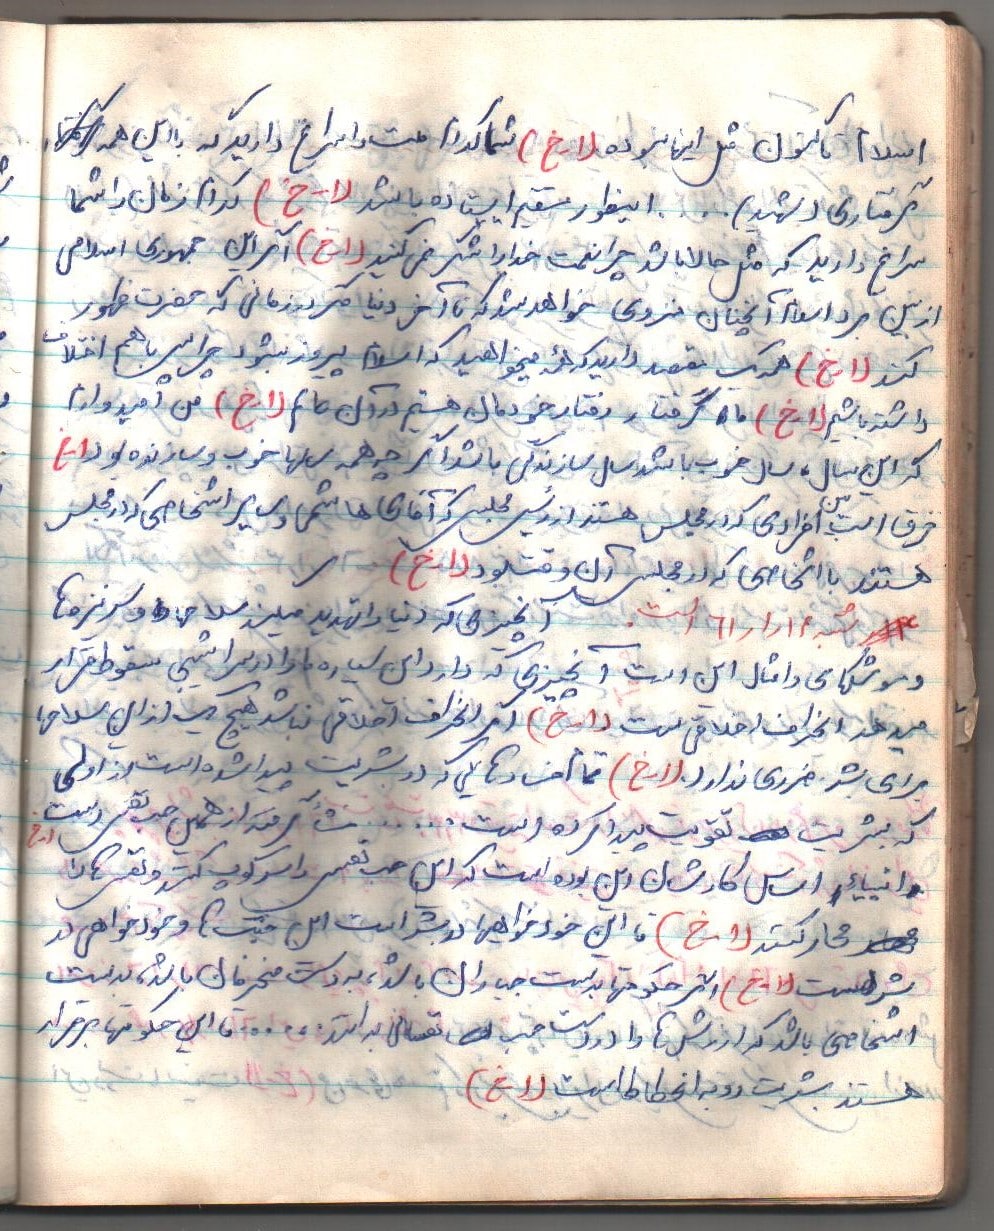 اسلام تاکنون مثل اینها نبوده (ا-خ) شما کدام ملت را سراغ دارید که با این همه
گرفتاری (شهید) ..... اینطور مستقیم ایستاده باشد (ا-خ) کدام زمان را شما
سراغ دارید که مثل حالا باشد چرا نعمت خدا را شکر نمی کنید (ا-خ) اگر این جمهوری اسلامی
از بین برود اسلام آنچنان منزوی خواهد شد که تا آخر دنیا مگر در زمانی که حضرت ظهور
کنند (ا-خ) همه یک مقصد دارید که همه میخواهید که اسلام پیروز بشود چرا پس با هم اختلاف
داشته باشیم (ا-خ) ما گرفتار رفتار خودمان هستیم در آن عالم (ا-خ) من امیدوارم
که این سال، سال خوب باشد سال سازندگی باشد اگر چه همه سالها خوب و سازنده بود ا-خ
فرق است بین افرادی که در مجلس هستند از رئیس مجلس که آقای هاشمی و سایر اشخاصی که در مجلس
هستند با اشخاصی که در مجلس آن وقت بود (ا-خ)
شنبه ۱۴ار۱ر۶۱ است. آنچیزی که دنیا را تهدید میکند سلاحها و سرنیزه ها
و موشکهای و امثال این است آنچیزی که دارد این سیاره ما را در سراشیبی سقوط قرار
میدهد انحراف اخلاقی است (ا-خ) اگر انحراف اخلاقی نباشد هیچ یک از این سلاحها
برای بشر ضرری ندارد (ا-خ) تمام فسادهایی که در بشریت پیدا شده است از اولی
که بشریت تقویت پیدا کرده است ..... منشأ گرفته از همین حب نفس است ا-خ
انبیاء، اساس کارشان این بوده است که این حب نفس را سرکوب کنند و نفس ها را
مهار کنند (ا-خ) تا این خودخواهیها در بشر است این جنگ ها و خودخواهی در
بشر است (ا-خ) اگر حکومتها بدست جباران باشد، بدست منحرفان باشد، بدست
اشخاصی باشد که ارزش ها را در حب نفسانی بدانند ..... تا این حکومتها برقرار
هستند بشریت رو به انحطاط است (ا-خ)